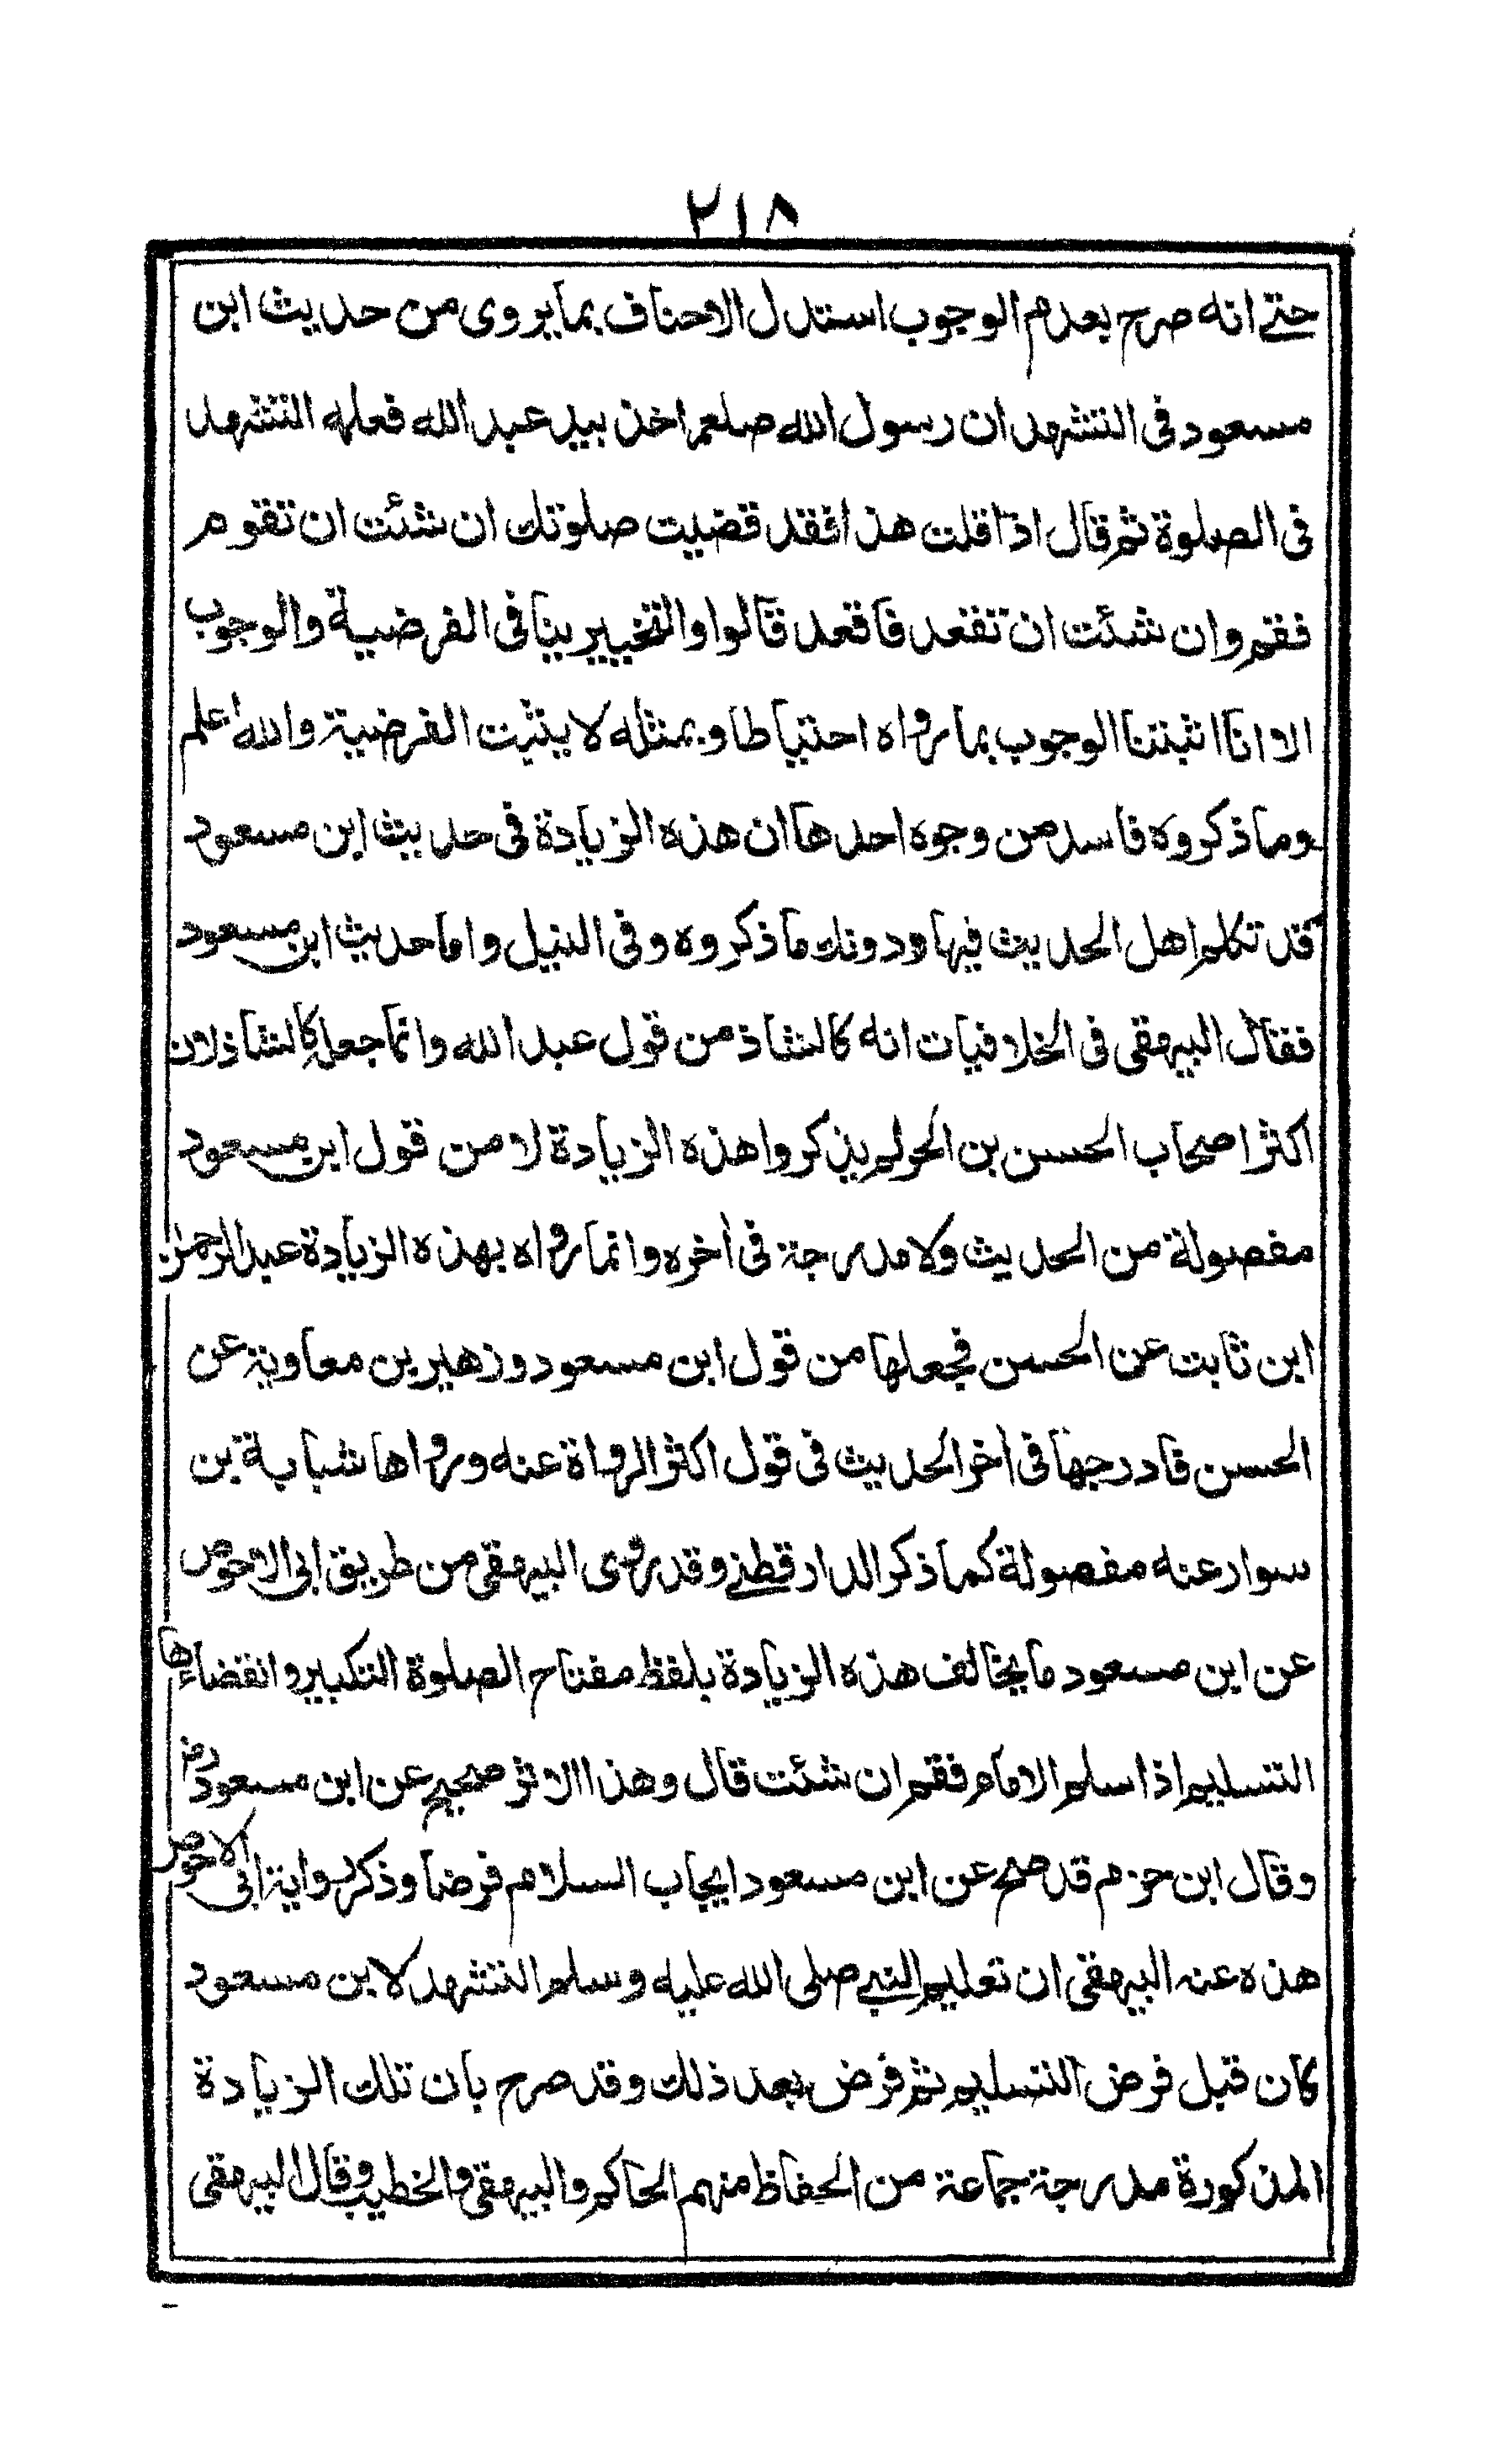 ٢١٨
حتے انه صرح بعدم الوجوب استدل الاحناف بما يروى من حديث ابن
مسعود فى التشهد ان رسول الله صلعم اخذ بيد عبد الله فعلمه التشهد
فى الصلوة ثم قال اذا قلت هذا فقد قضيت صلوتك ان شئت ان تقوم
فقم وان شئت ان تقعد فاقعد قالوا والتخيير ينافى الفرضية والوجوب
الا انا اثبتنا الوجوب بما رواه احتياطا وبمثله لا يثبت الفرضية والله اعلم
وما ذكروه فاسد من وجوه احدها ان هذه الزيادة فى حديث ابن مسعود
قد تكلم اهل الحديث فيها ودونك ما ذكروه وفى النيل واما حديث ابن مسعود
فقال البيهقى فى الخلافيات انه كالشاذ من قول عبد الله وانما جعله كالشاذ لان
اكثر اصحاب الحسن بن الحر لم يذكروا هذه الزيادة لا من قول ابن مسعود
مفصولة من الحديث ولا مدرجة فى أخره وانما رواه بهذه الزيادة عبد الرحمن
ابن ثابت عن الحسن فجعلها من قول ابن مسعود وزهير بن معاوية عن
الحسن فادرجها فى أخر الحديث فى قول اكثر الرواة عنه ورواها شبابة بن
سوار عنه مفصولة كما ذكر الدارقطنے وقد روى البيهقى من طريق ابى الاحوص
عن ابن مسعود ما يخالف هذه الزيادة بلفظ مفتاح الصلوة التكبير وانقضاءها
التسليم اذا سلم الامام فقم ان شئت قال وهذا الاثر صحيح عن ابن مسعود رض
وقال ابن حزم قد صح عن ابن مسعود ايجاب السلام فرضا وذكر رواية ابى الاحوص
هذه عنه البيهقى ان تعليم النبے صلى الله عليه وسلم التشهد لابن مسعود
كان قبل فرض التسليم ثم فرض بعد ذلك وقد صرح بان تلك الزيادة
المذكورة مدرجة جماعة من الحفاظ منهم الحاكم والبيهقى والخطيب وقال البيهقى